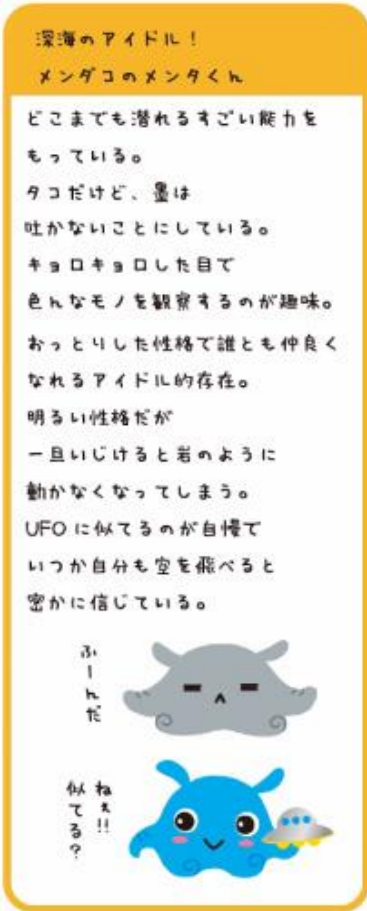 深海のアイドル！
メンダコのメンタくん
どこまでも潜れるすごい能力を
もっている。
タコだけど、墨は
吐かないことにしている。
キョロキョロした目で
色んなモノを観察するのが趣味。
おっとりした性格で誰とも仲良く
なれるアイドル的存在。
明るい性格だが
一旦いじけると岩のように
動かなくなってしまう。
UFOに似てるのが自慢で
いつか自分も空を飛べると
密かに信じている。
ふーんだ
ねぇ!!
似てる？